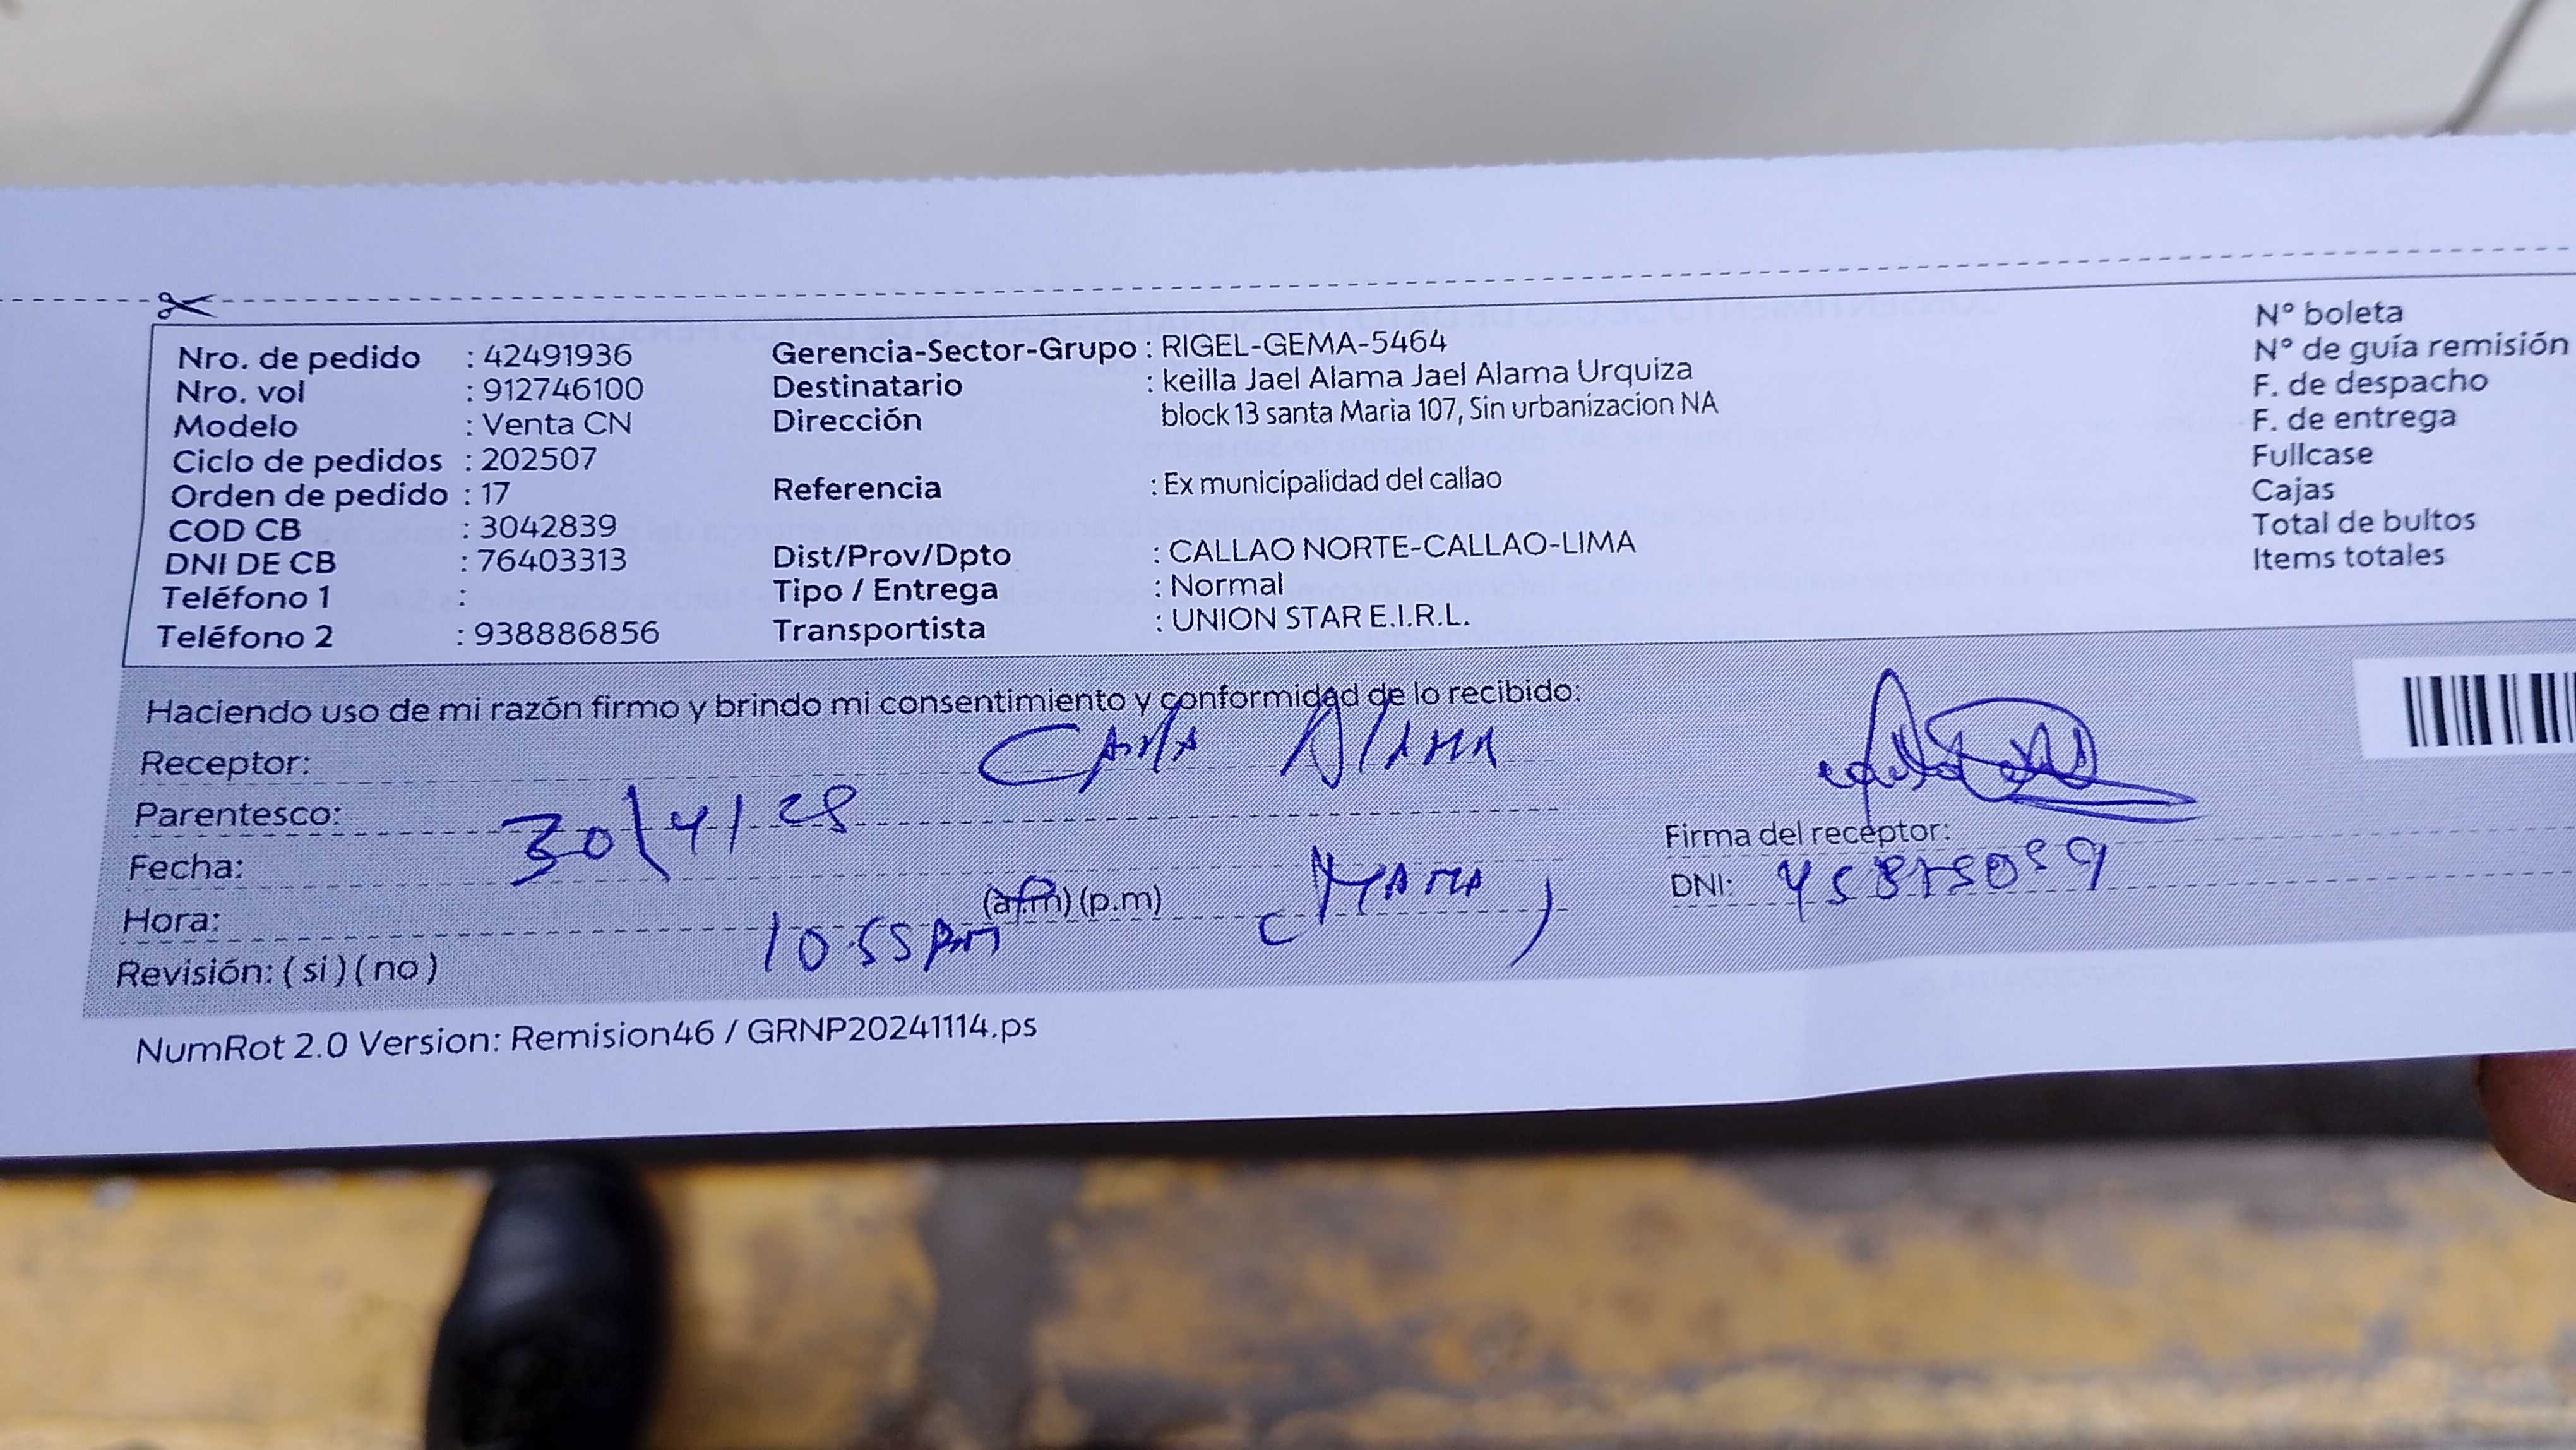 Nro. de pedido : 42491936
Nro. vol : 912746100
Modelo : Venta CN
Ciclo de pedidos : 202507
Orden de pedido : 17
COD CB : 3042839
DNI DE CB : 76403313
Teléfono 1 :
Teléfono 2 : 938886856
Gerencia-Sector-Grupo : RIGEL-GEMA-5464
Destinatario : keilla Jael Alama Jael Alama Urquiza
Dirección block 13 santa Maria 107, Sin urbanizacion NA
Referencia : Ex municipalidad del callao
Dist/Prov/Dpto : CALLAO NORTE-CALLAO-LIMA
Tipo / Entrega : Normal
Transportista : UNION STAR E.I.R.L.
N° boleta
N° de guía remisión
F. de despacho
F. de entrega
Fullcase
Cajas
Total de bultos
Items totales
Haciendo uso de mi razón firmo y brindo mi consentimiento y conformidad de lo recibido:
Receptor: Alama
Parentesco:
Fecha: 30/4/25
Hora: 10.55 am (a.m) (p.m) (Mama)
Revisión: ( si ) ( no )
Firma del receptor:
DNI:
NumRot 2.0 Version: Remision46 / GRNP20241114.ps